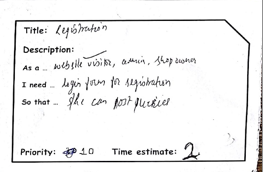 Title: Registration
Description:
As a ... website visitor, admin, shop owner
I need ... login form for registration
So that ... she can post
Priority: 10 Time estimate: 2